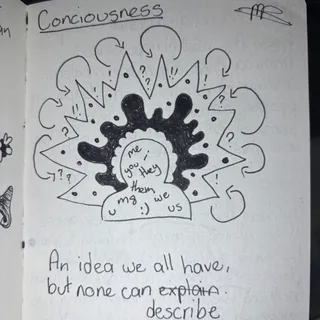 Conciousness
me
you i
they
them
my we
u :) us
? ? !! !! ? ?
? ? ? ?
An idea we all have,
but none can explain.
describe